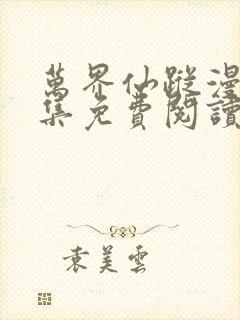 萬界仙蹤漫
集免費閱讀
袁美雲